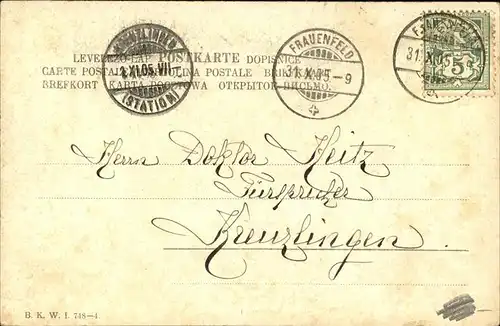 LEVELEZŐ-LAP POSTKARTE DOPISNICE
CARTE POSTALE POSTALE
BREFKORT ОТКРЫТОЕ ПИСЬМО.
(STATION)
1.XI.05.VII
FRAUENFELD
31.X.05.-9
FRAUENFELD
31.X.05
5
Herrn Doktor Heitz
Fürsprecher
Kreuzlingen.
B. K. W. I. 748-4